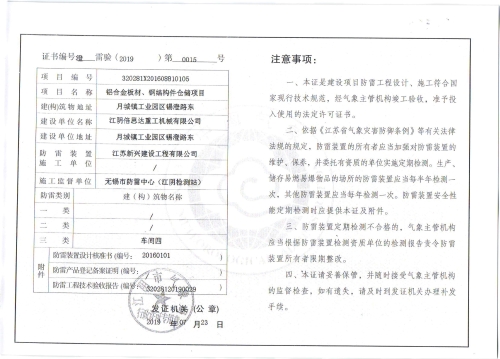 证书编号澄雷验(2019)第0015号
项目编号 320281X201608010105
项目名称 铝合金板材、钢结构件仓储项目
建(构)筑物地址 月城镇工业园区锡澄路东
建设单位名称 江阴信思达重工机械有限公司
建设单位地址 月城镇工业园区锡澄路东
防雷装置施工单位 江苏新兴建设工程有限公司
施工监督单位 无锡市防雷中心(江阴检测站)
防雷类别 建(构)筑物名称
一类 /
二类 /
三类 车间四
附件
防雷装置设计核准书(编号: 20160101 )
防雷产品登记备案证明(编号: / )
防雷工程技术验收报告(编号: 32028120190029 )
发证机关(公章)
2019年07月23日
注意事项:
一、本证是建设项目防雷工程设计、施工符合国
家现行技术规范,经气象主管机构竣工验收,准予投
入使用的法定许可证书。
二、依据《江苏省气象灾害防御条例》等有关法律
法规的规定,防雷装置的所有者应当加强对防雷装置的
维护、保养,并委托有资质的单位实施定期检测。生产、
储存易燃易爆物品的场所的防雷装置应当每半年检测一
次,其他防雷装置应当每年检测一次。防雷装置安全性
能定期检测时应提供本证及附件。
三、防雷装置定期检测不合格的,气象主管机构
应当根据防雷装置检测资质单位的检测报告责令防雷
装置所有者限期整改。
四、本证请妥善保管,并随时接受气象主管机构
的监督检查,如有遗失,请及时到发证机关办理补发
手续。